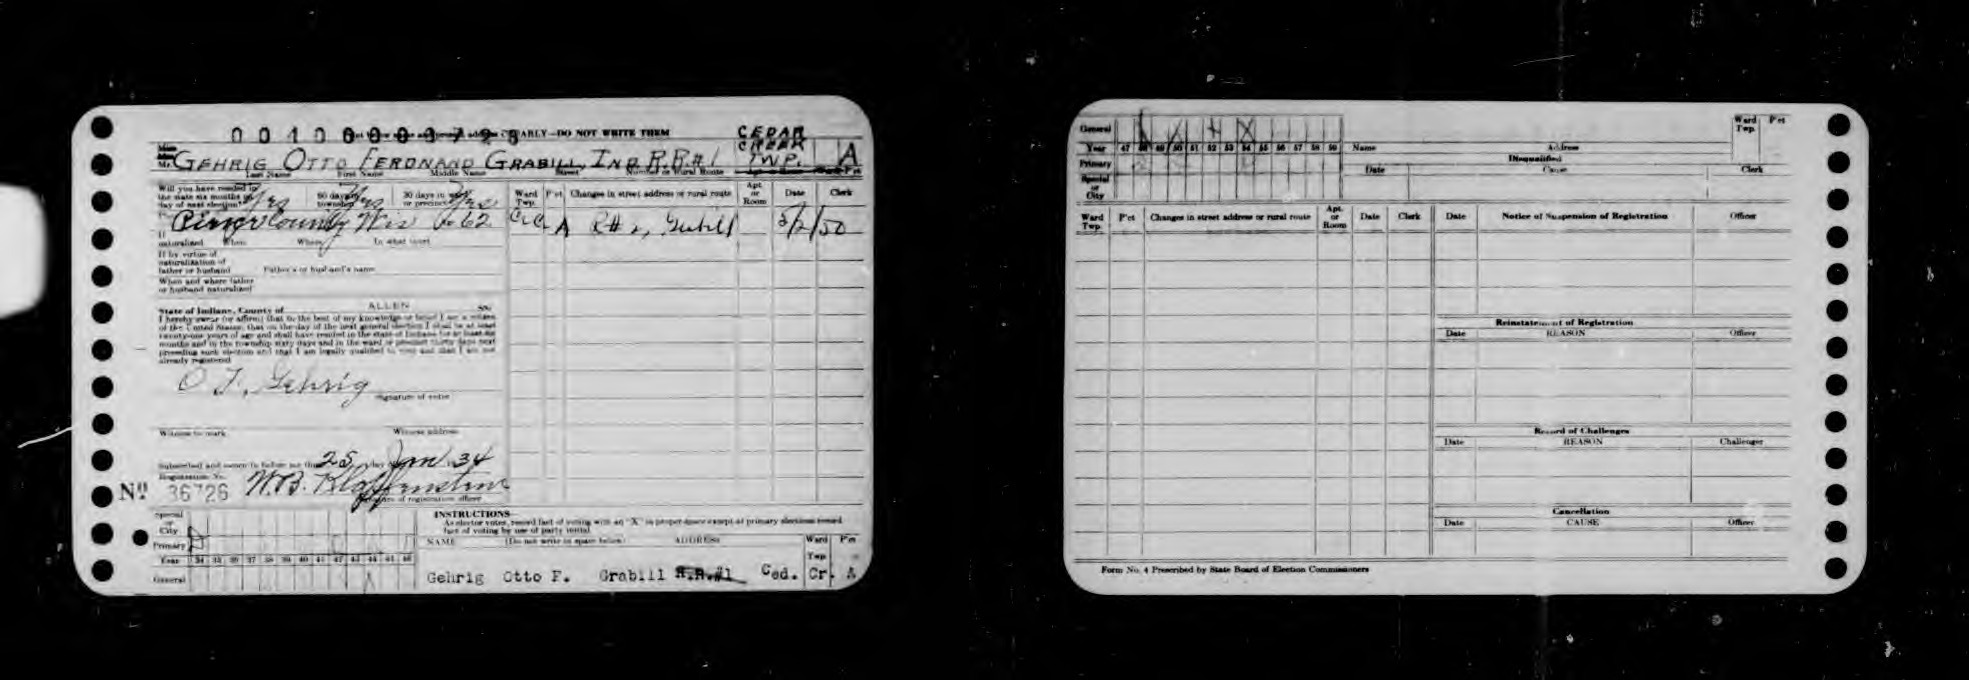 CLEARLY—DO NOT WRITE THEM
CEDAR
CREEK
TWP. A
Mr. GEHRIG OTTO FERDNAND GRABILL, IND R.R.#1
Last Name First Name Middle Name Street Number or Rural Route
Will you have resided in
the state six months on
day of next election? Yrs 60 days in
township Yrs 30 days in ward
or precinct Yrs
County Wis 62
If
naturalized When Where In what court
If by virtue of
naturalization of
father or husband Father's or husband's name
When and where father
or husband naturalized
State of Indiana, County of ALLEN
I hereby swear (or affirm) that to the best of my knowledge or belief I am a citizen
of the United States, that on the day of the next general election I shall be at least
twenty-one years of age and shall have resided in the state of Indiana for at least six
months and in the township sixty days and in the ward or precinct thirty days next
preceding such election and that I am legally qualified to vote and that I am not
already registered
O F. Gehrig
Signature of voter
Witness to mark Witness address
Subscribed and sworn to before me this 25 day Jan 34
Registration No.
No 36726 W.B. Klopfenstein
Signature of registration officer
Ward
Twp. P'ct Changes in street address or rural route Apt.
or
Room Date Clerk
A R# 2, Grabill 5/2/50
Special
or
City
Primary
Year 34
General
INSTRUCTIONS
As elector votes, record fact of voting with an "X" in proper space except at primary elections record
fact of voting by use of party initial
NAME (Do not write in space below) ADDRESS Ward
Twp. P'ct
Gehrig Otto F. Grabill R.R.#1 Ced. Cr. A
General
Year 47 48 49 50 51 52 53 54 55 56 57 58 59
Primary
Special
or
City
Ward
Twp. P'ct
Name Address
Disqualified
Date Cause Clerk
Ward
Twp. P'ct Changes in street address or rural route Apt.
or
Room Date Clerk
Date Notice of Suspension of Registration Officer
Reinstatement of Registration
Date REASON Officer
Record of Challenges
Date REASON Challenger
Cancellation
Date CAUSE Officer
Form No. 4 Prescribed by State Board of Election Commissioners